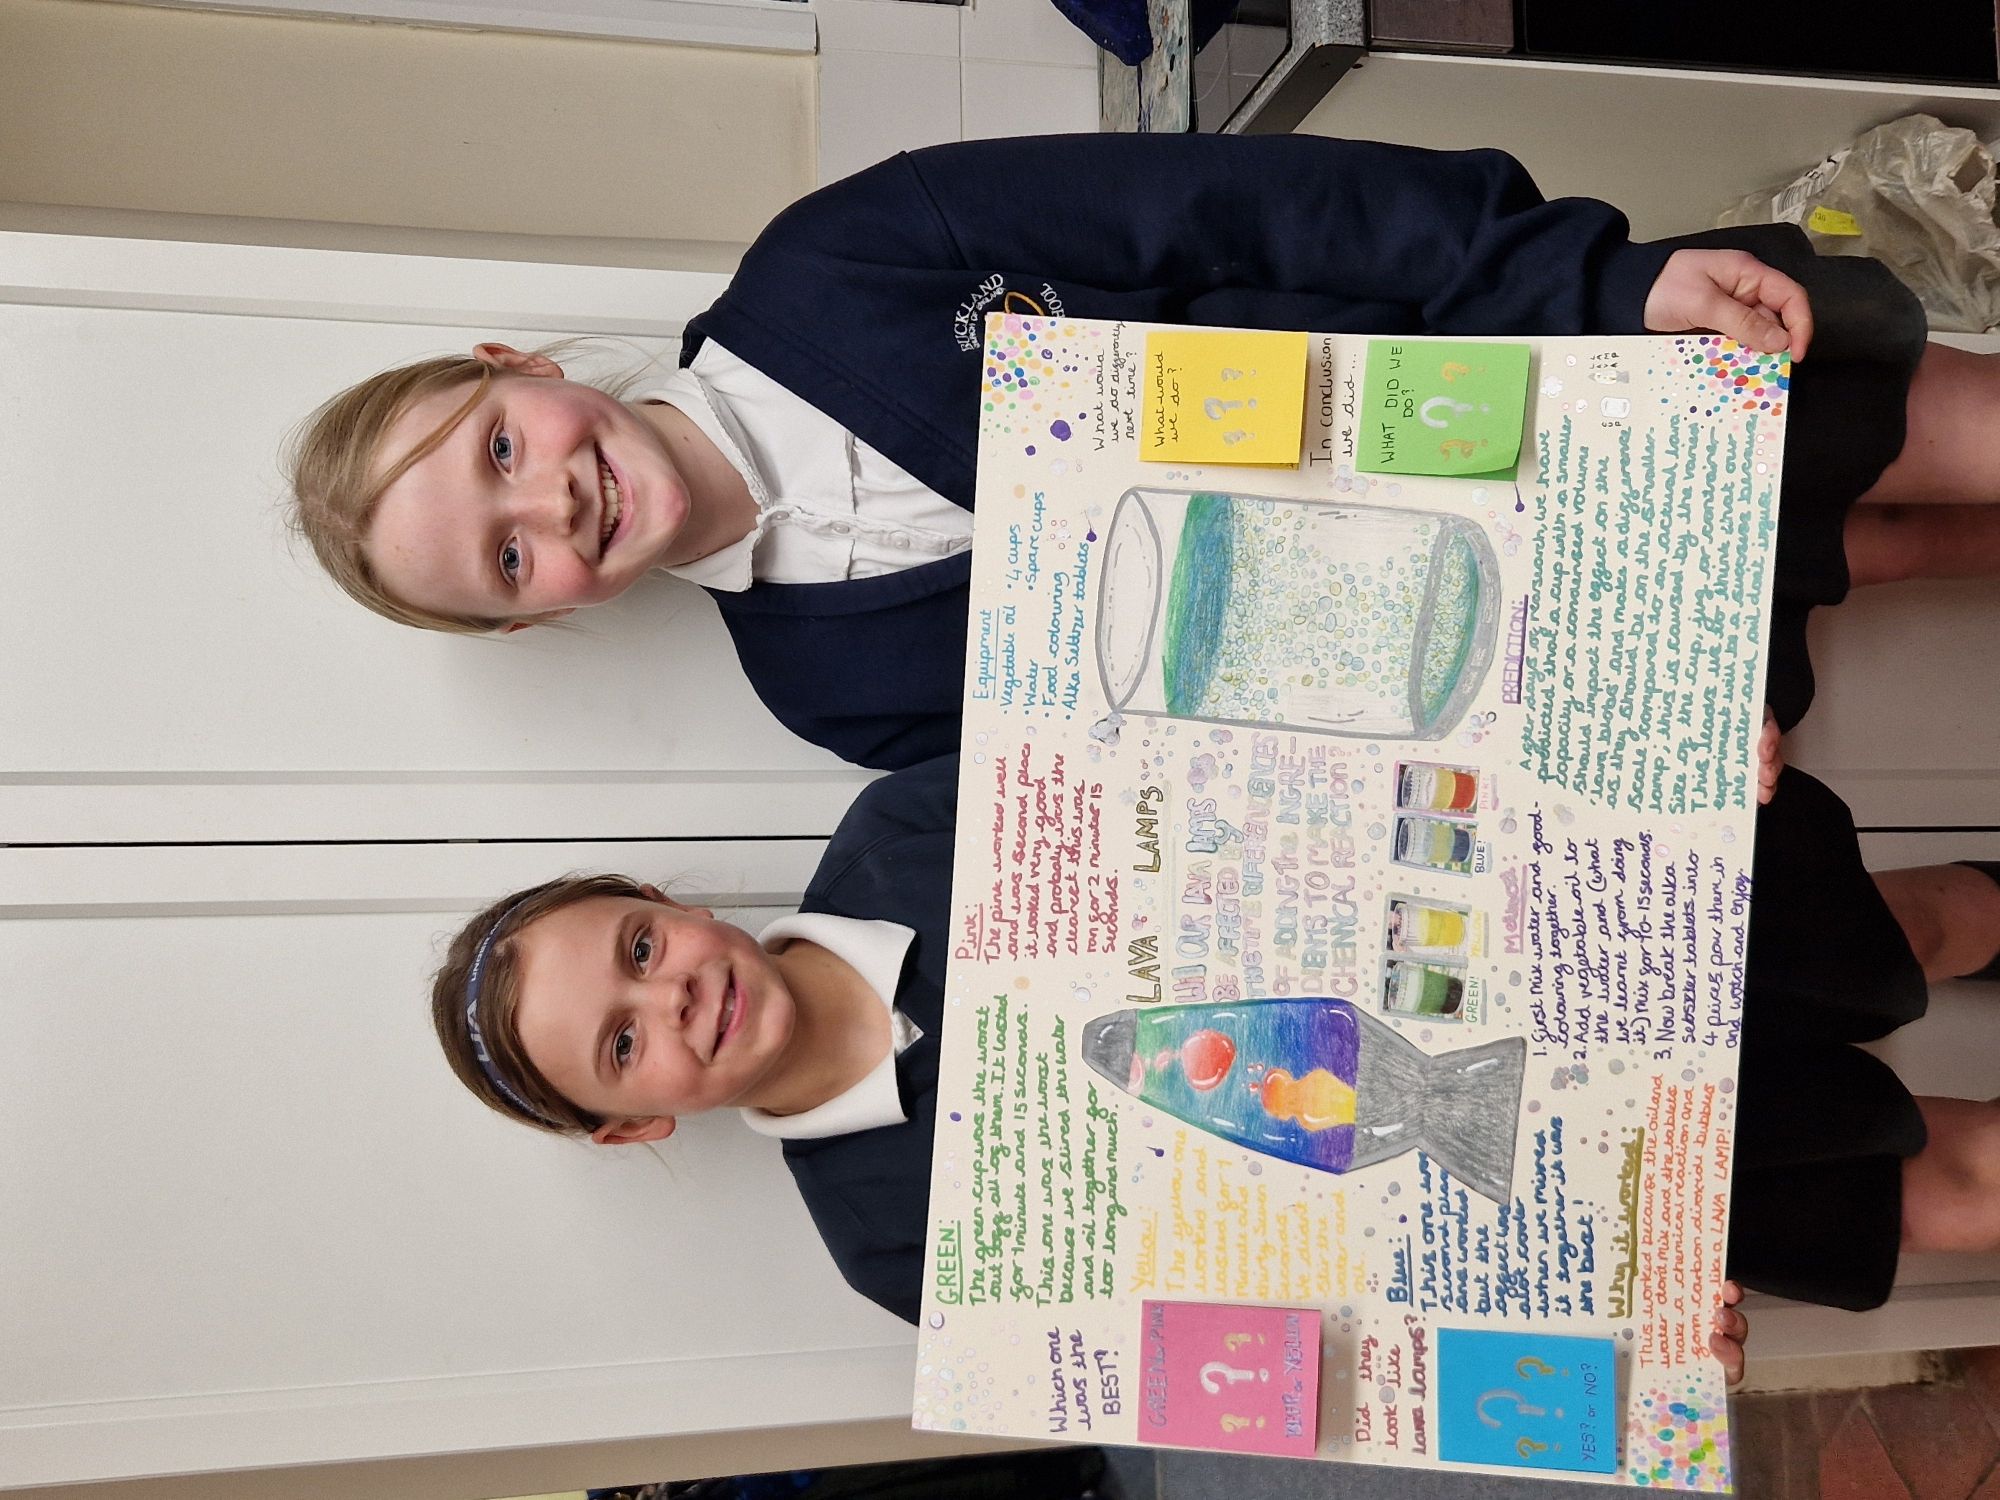 BUCKLAND
CHURCH OF ENGLAND
UNDER ARMOUR
GREEN:
The green cup was the worst
out of all of them. It lasted
for 1 minute and 15 seconds.
This one was the worst
because we stired the water
and oil together for
too long and much.
Pink:
The pink worked well
and was second place
it looked very good
and probaly was the
clearest this was
ran for 2 minutes 15
seconds.
Equipment
• Vegetable oil
• Water
• Food colouring
• Alka Seltzer tablets
• 4 cups
• Spare cups
What would
we do differently
next time?
What would
we do?
? ? ?
In conclusion
we did ...
WHAT DID WE
DO?
? ? ?
Which one
was the
BEST?
GREEN, PINK
? ? ?
BLUE or YELLOW
Yellow:
The yellow one
worked and
lasted for 1
minute and
thirty seven
seconds.
We didnt
stir the
water and
oil.
LAVA LAMPS
WILL OUR LAVA LAMPS
BE AFFECTED BY
THE TIME DIFFERENCES
OF ADDING THE INGRE-
DIENTS TO MAKE THE
CHEMICAL REACTION?
GREEN!
YELLOW!
BLUE!
PINK!
Did they
look like
lava lamps?
? ? ?
YES? or NO?
Blue:
This one was
second place
and worked
but the
affecting
alot cooler
when we mixed
it together it was
the best!
Why it worked:
This worked because the oil and
water don't mix and the tablets
make a chemical reaction and
form carbon dioxide bubbles
like a LAVA LAMP!
Method:
1. First mix water and food-
colouring together.
2. Add vegetable oil to
the water and (what
we learnt from doing
it) mix for 10-15 seconds.
3. Now break the alka
seltzer tablets into
4 pices pour them in
and watch and enjoy.
PREDICTION:
After days of research we have
predicted that a cup with a smaller
capacity or a condensed volume
should impact the effect on the
'lava blobs' and make a difference
as they should be on the smaller
scale (compared to an actual lava
lamp; this is caused by the varied
size of the cup, jug or container.
This leads us to think that our
experiment will be a success because
the water and oil don't
CUP
LAVA
LAMP